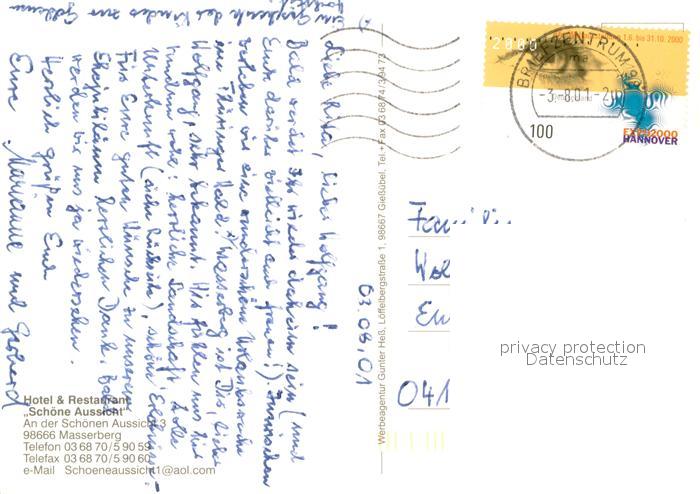 Liebe Rita, lieber Wolfgang!
Bald werdet Ihr wieder daheim sein (und
Euch darüber vielleicht auch freuen!) Inzwischen
verleben wir eine wunderschöne Urlaubswoche
im Thüringer Wald. Masserberg ist Dir, lieber
Wolfgang, sehr bekannt. Wir fühlen uns hier
rundum wohl: herrliche Landschaft, tolle
Unterkunft (siehe Rückseite), schöne Erlebnisse.
Für Eure guten Wünsche zu unserem
Ehejubiläum herzlichen Dank. Bald
werden wir uns ja wiedersehen.
Herzlich grüßen Euch
Eure Marianne und
x) ein Geschenk des Kindes zur Goldenen
Hotel & Restaurant
„Schöne Aussicht"
An der Schönen Aussicht 3
98666 Masserberg
Telefon 03 68 70/5 90 59
Telefax 03 68 70/5 90 60
e-Mail Schoeneaussicht1@aol.com
Werbeagentur Gunter Heß, Löffelbergstraße 1, 98667 Gießübel, Tel.+ Fax 03 68 74/3 94 73
03.08.01
1.6. bis 31.10. 2000
2000
BRIEFZENTRUM 98
-3.-8.01-2
100
EXPO2000
HANNOVER
Fam
Wol
En
041
privacy protection
Datenschutz